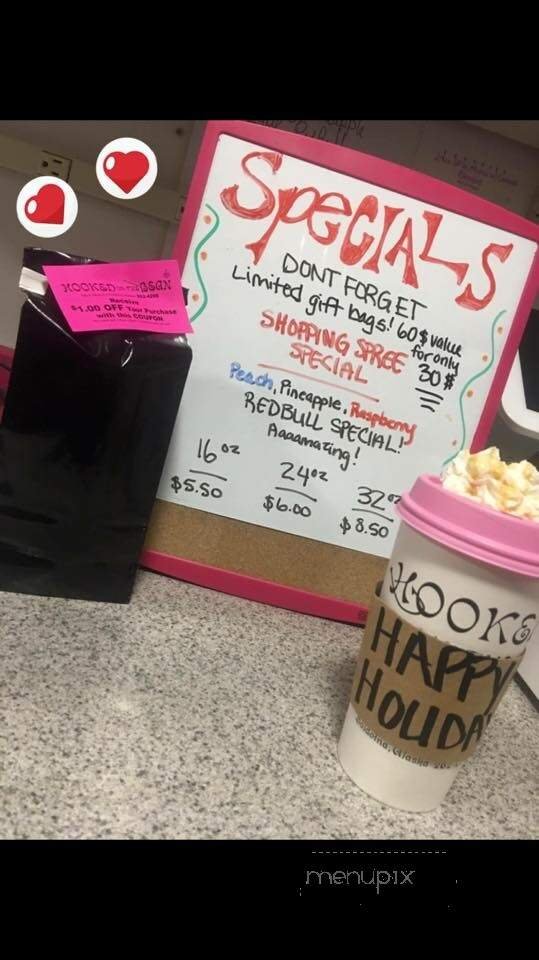 SPECIALS
DONT FORGET
Limited gift bags! 60$ value
for only
30$
SHOPPING SPREE
SPECIAL
Peach, Pineapple, Raspberry
REDBULL SPECIAL!
Aaaamazing!
16 oz
$5.50
24oz
$6.00
32oz
$8.50
HOOKED on the BEAN
Receive
$1.00 OFF Your Purchase
with this COUPON
HOOKE
HAPPY
HOLIDA
Alaska
menupix